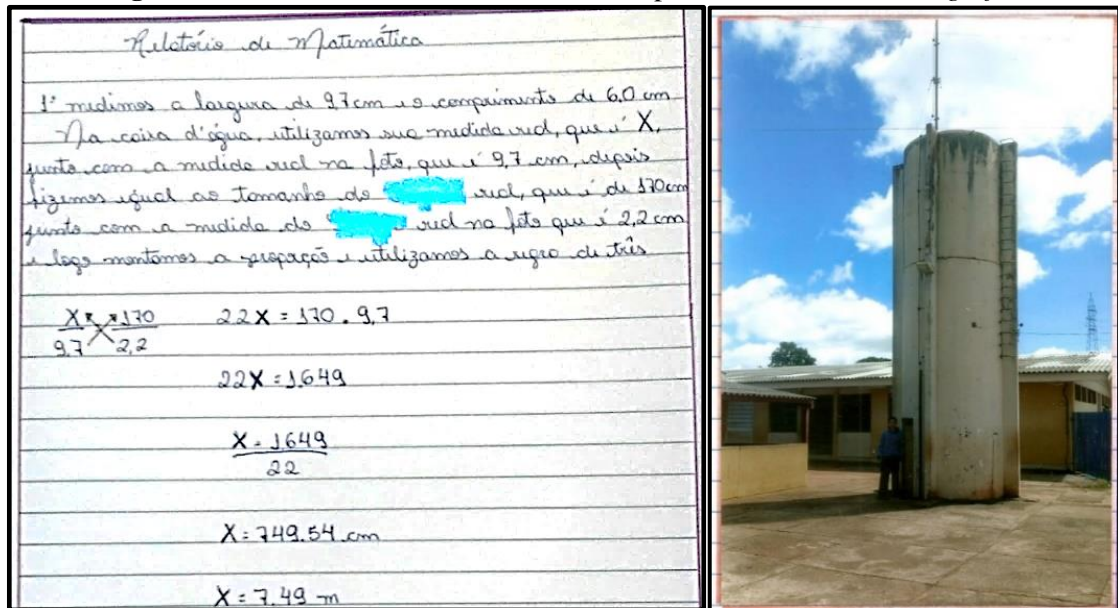 Relatório de Matemática
1º medimos a largura de 9,7 cm e o comprimento de 6,0 cm
Na caixa d'água, utilizamos sua medida real, que é X,
junto com a medida real na foto, que é 9,7 cm, depois
fizemos igual ao tamanho do real, que é de 170cm
junto com a medida do real na foto que é 2,2 cm
e logo montamos a proporção e utilizamos a regra de três
X 170 22X = 170 . 9,7
9,7 2,2
22X = 1649
X = 1649
22
X = 749.54 cm
X = 7.49 m